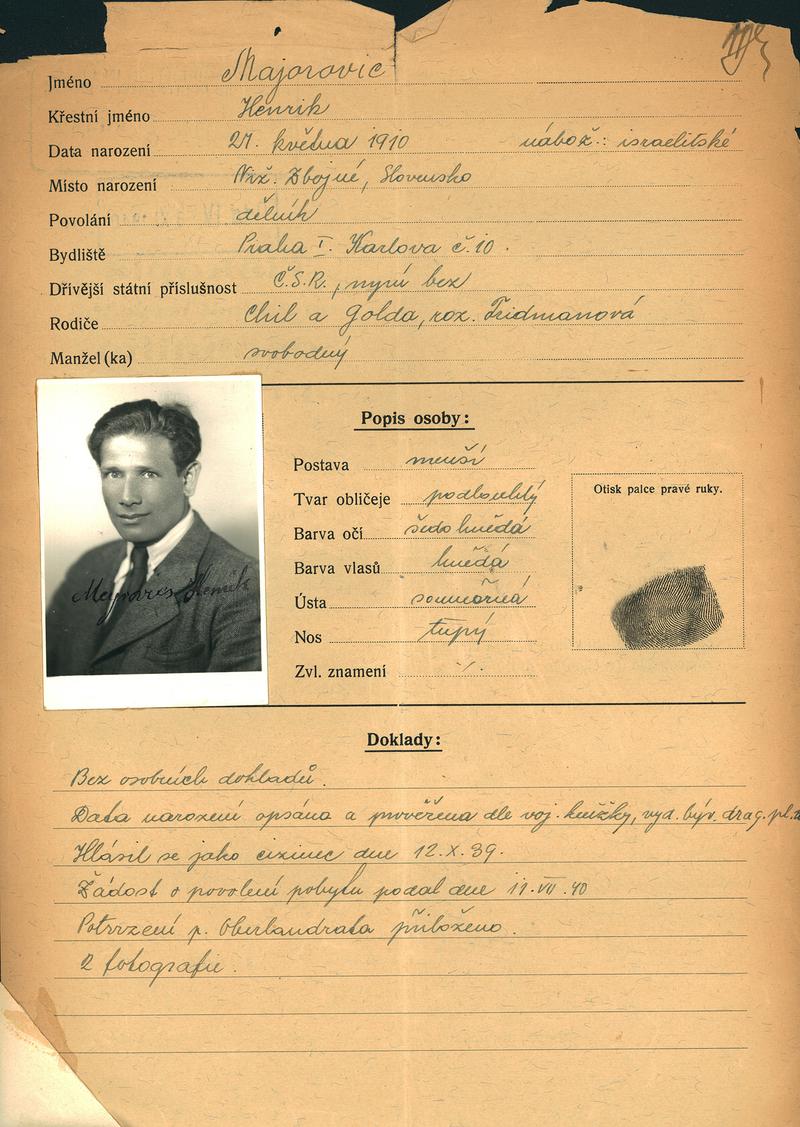 Jméno Majorovic
Křestní jméno Henrik
Data narození 27. května 1910 nábož.: israelitské
Místo narození Niž. Zbojné, Slovensko
Povolání dělník
Bydliště Praha I. Karlova č. 10.
Dřívější státní příslušnost Č.S.R., nyní bez
Rodiče Chil a Golda, roz. Fridmanová
Manžel (ka) svobodný
Popis osoby:
Postava menší
Tvar obličeje podlouhlý
Barva očí šedohnědá
Barva vlasů hnědá
Ústa souměrná
Nos tupý
Zvl. znamení ./.
Otisk palce pravé ruky.
Henrik
Doklady:
Bez osobních dokladů.
Data narození opsána a prověřena dle voj. knížky, vyd. býv. drag. pl.
Hlásil se jako cizinec dne 12.X.39.
Žádost o povolení pobytu podal dne 11.VII.40
Potvrzení p. Oberlandrata přiloženo.
2 fotografie.